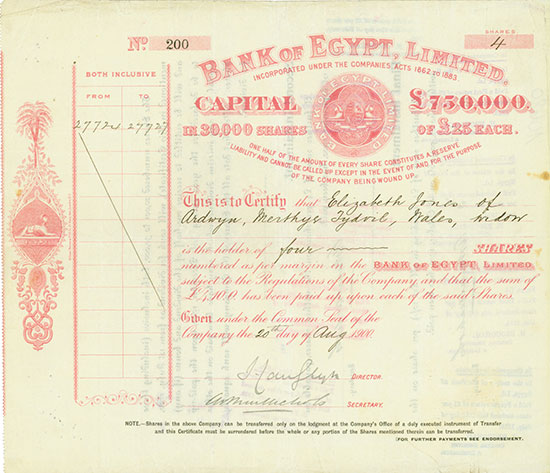 No. 200
SHARES
4
BANK OF EGYPT, LIMITED,
INCORPORATED UNDER THE COMPANIES ACTS 1862 TO 1883.
BOTH INCLUSIVE
FROM TO
27724 27727
CAPITAL £750,000.
IN 30,000 SHARES OF £25 EACH.
BANK OF EGYPT LIMITED
ONE HALF OF THE AMOUNT OF EVERY SHARE CONSTITUTES A RESERVE
LIABILITY AND CANNOT BE CALLED UP EXCEPT IN THE EVENT OF AND FOR THE PURPOSE
OF THE COMPANY BEING WOUND UP.
This is to Certify that Elizabeth Jones of
Ardwyn, Merthyr Tydvil, Wales, widow
is the holder of four SHARES
numbered as per margin in the BANK OF EGYPT LIMITED
subject to the Regulations of the Company and that the sum of
£ 12,10.0 has been paid up upon each of the said Shares.
Given under the Common Seal of the
Company the 20th day of Aug 1900.
DIRECTOR.
SECRETARY.
NOTE.—Shares in the above Company, can be transferred only on the lodgment at the Company's Office of a duly executed instrument of Transfer
and this Certificate must be surrendered before the whole or any portion of the Shares mentioned therein can be transferred.
(FOR FURTHER PAYMENTS SEE ENDORSEMENT.